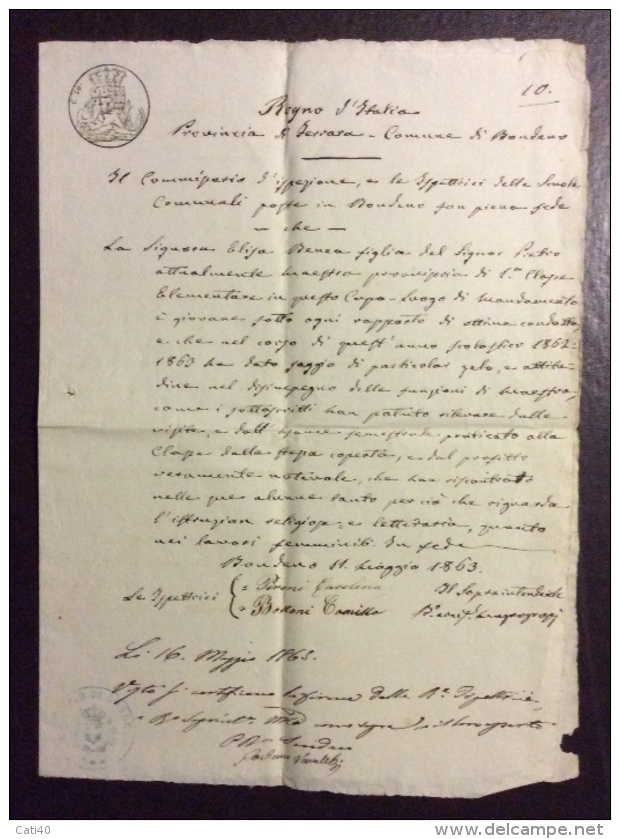 10.
Regno d'Italia
Provincia di Ferrara - Comune di Bondeno
Il Commissario d'ispezione, e le Ispettrici delle Scuole
Comunali poste in Bondeno fan piena fede
- che -
La Signora Elisa Benea figlia del Signor Pietro
attualmente Maestra provvisoria di 1.a Classe
Elementare in questo Capo-Luogo di Mandamento
è giovane sotto ogni rapporto di ottima condotta,
e che nel corso di quest'anno scolastico 1862-
1863 ha dato saggio di particolar zelo, e attitu-
dine nel disimpegno delle funzioni di Maestra,
come i sottoscritti han potuto rilevare dalle
visite, e dall'esame semestrale praticato alla
Classe dalla stessa coperta, e dal profitto
veramente notevole, che han riscontrato
nelle sue alunne tanto per ciò che riguarda
l'istruzion religiosa, e letteraria, quanto
nei lavori femminili. In fede
Bondeno 11. Maggio 1863.
Le Ispettrici Peroni Carolina Il Sopraintendente
Bottoni Camilla
Li 16. Maggio 1863.
Visto si certificano le firme delle
Cati40
www.delcampe.net